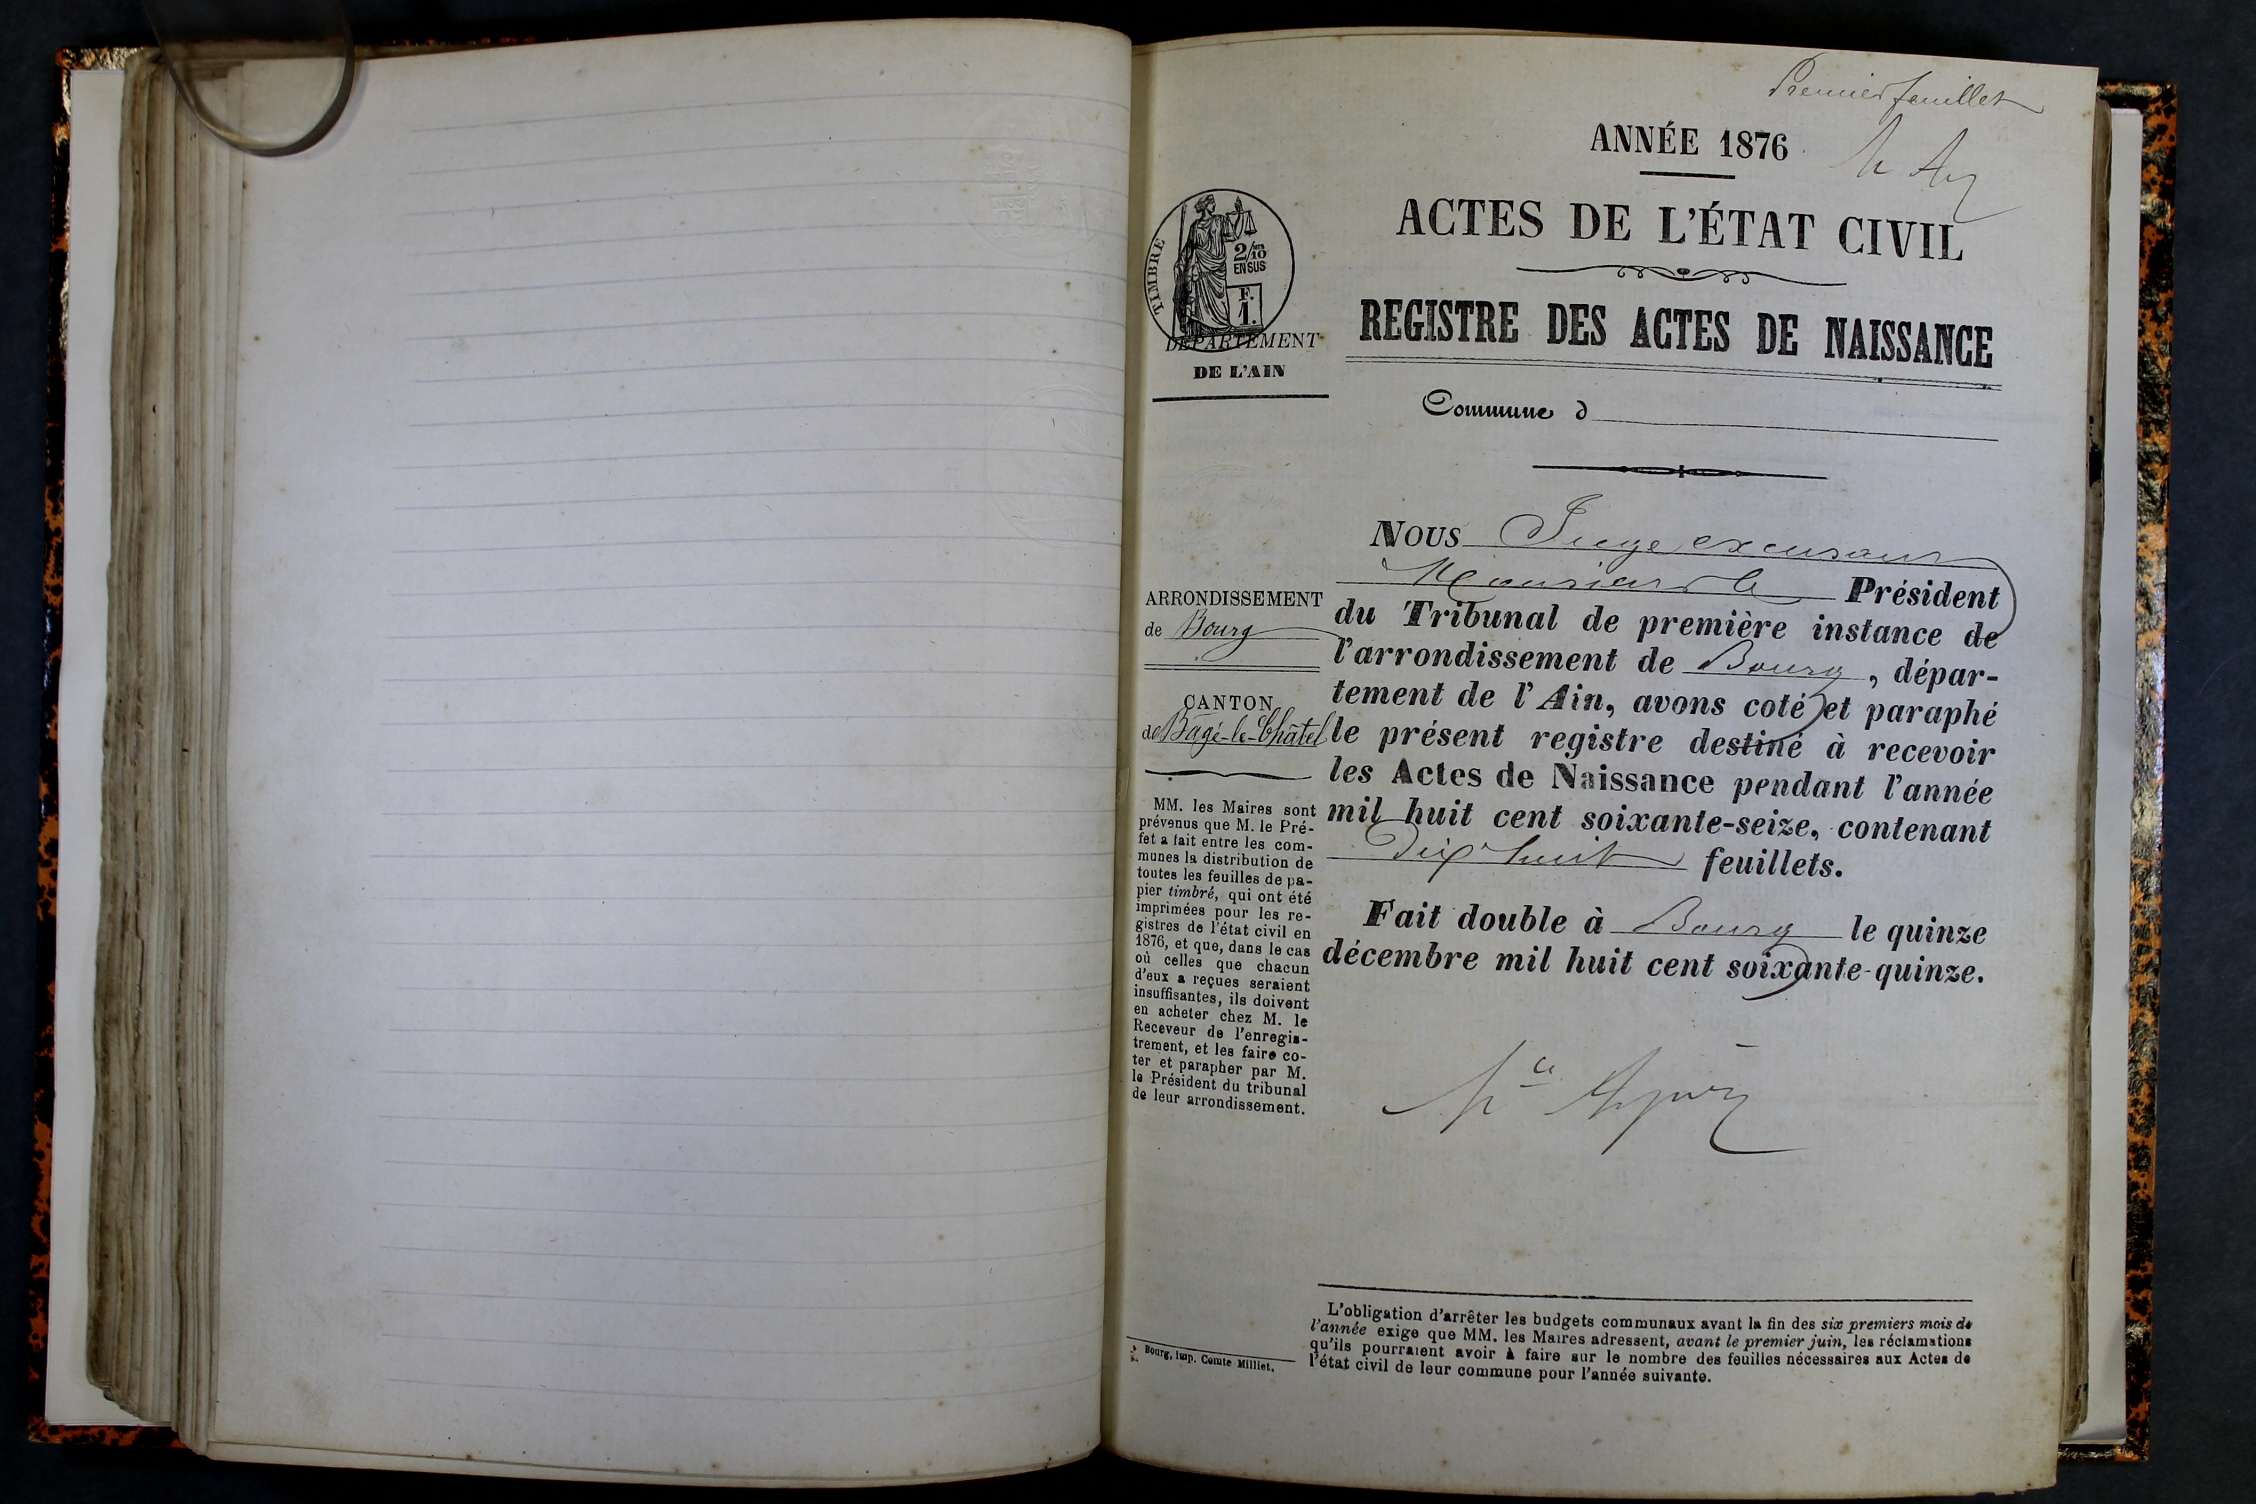 Premier feuillet
ANNÉE 1876
ACTES DE L'ÉTAT CIVIL
REGISTRE DES ACTES DE NAISSANCE
Commune d
TIMBRE
2/10 EN SUS
F.
1.
DÉPARTEMENT
DE L'AIN
ARRONDISSEMENT
de Bourg
CANTON
de Bâgé-le-Châtel
MM. les Maires sont
prévenus que M. le Pré-
fet a fait entre les com-
munes la distribution de
toutes les feuilles de pa-
pier timbré, qui ont été
imprimées pour les re-
gistres de l'état civil en
1876, et que, dans le cas
où celles que chacun
d'eux a reçues seraient
insuffisantes, ils doivent
en acheter chez M. le
Receveur de l'enregis-
trement, et les faire co-
ter et parapher par M.
le Président du tribunal
de leur arrondissement.
Bourg, imp. Comte Milliet.
NOUS Juge excusant
Monsieur le Président
du Tribunal de première instance de
l'arrondissement de Bourg, dépar-
tement de l'Ain, avons coté et paraphé
le présent registre destiné à recevoir
les Actes de Naissance pendant l'année
mil huit cent soixante-seize, contenant
Dix huit feuillets.
Fait double à Bourg le quinze
décembre mil huit cent soixante-quinze.
L'obligation d'arrêter les budgets communaux avant la fin des six premiers mois de
l'année exige que MM. les Maires adressent, avant le premier juin, les réclamations
qu'ils pourraient avoir à faire sur le nombre des feuilles nécessaires aux Actes de
l'état civil de leur commune pour l'année suivante.